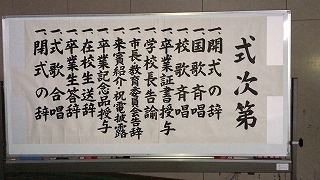 式次第
一開式の辞
一国歌斉唱
一校歌斉唱
一卒業証書授与
一学校長告諭
一市長・教育委員会告辞
一来賓紹介・祝電披露
一卒業記念品授与
一在校生送辞
一卒業生答辞
一式歌合唱
一閉式の辞